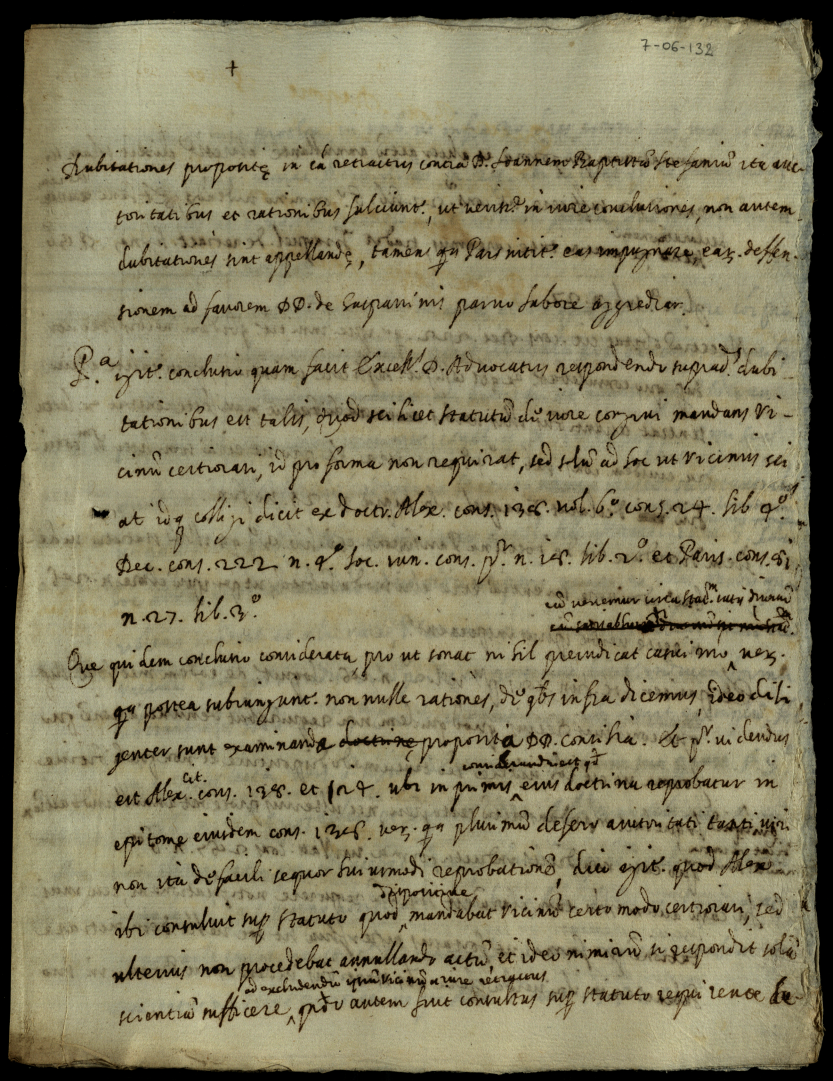 7-06-132
+
Dubitationes propositę in cã retractus contra D. Joannem Baptistã Stefaniũ ita auc-
toritatibus et rationibus fulciunt.r, ut verius in iure conclusiones, non autem
dubitationes sint appellandę, tamen qa Pars nitit.r eas impugnare, ear. deffen-
sionem ad favorem DD. de Gasparinis parvo labore aggrediar.
P.a igit.r conclusio quam facit Excell. D. Advocatus respondendo suprad. dubi
tationibus est talis, quod scilicet statutũ de iore congrui mandans vi-
cinũ certiorari, id pro forma non requirat, sed solũ ad hoc ut vicinus sci
at idq colligi dicit ex doctr. Alex. cons. 138. vol. 6.o cons. 24. lib. 4.o
Dec. cons. 222 n. 4. Soc. iun. cons. pr. n. 18. lib. 2.o et Paris. cons. 81
n. 27. lib. 3.o
sed versemur circa
Que quidem conclusio considerata, pro ut sonat nihil preiudicat casui nro, ver.
qa postea subiungunt.r non nulle rationes, de qbs infra dicemus, ideo dili
genter sunt examinanda doctrinę proposita DD. consilia. Et pr. videndus
considerandũ est qd
est Alex. cit. cons. 138. et 124. ubi in primis eius doctrina reprobatur in
epitome eiusdem cons. 138. ver. qa plurimũ defero auctoritati tanti viri
non ita de facili sequor huiusmodi reprobationẽ, dico igit.r quod Alex
disponente
ibi consuluit sup statuto quod mandabat vicinũ certo modo certiorari, sed
ulterius non procedebat annullando actũ, et ideo nimirũ si respondit solã
ad excludendũ ipsũ vicinũ a iure retractus
scientiã sufficere, qñdo autem fuit consultus sup statuto requirente de-